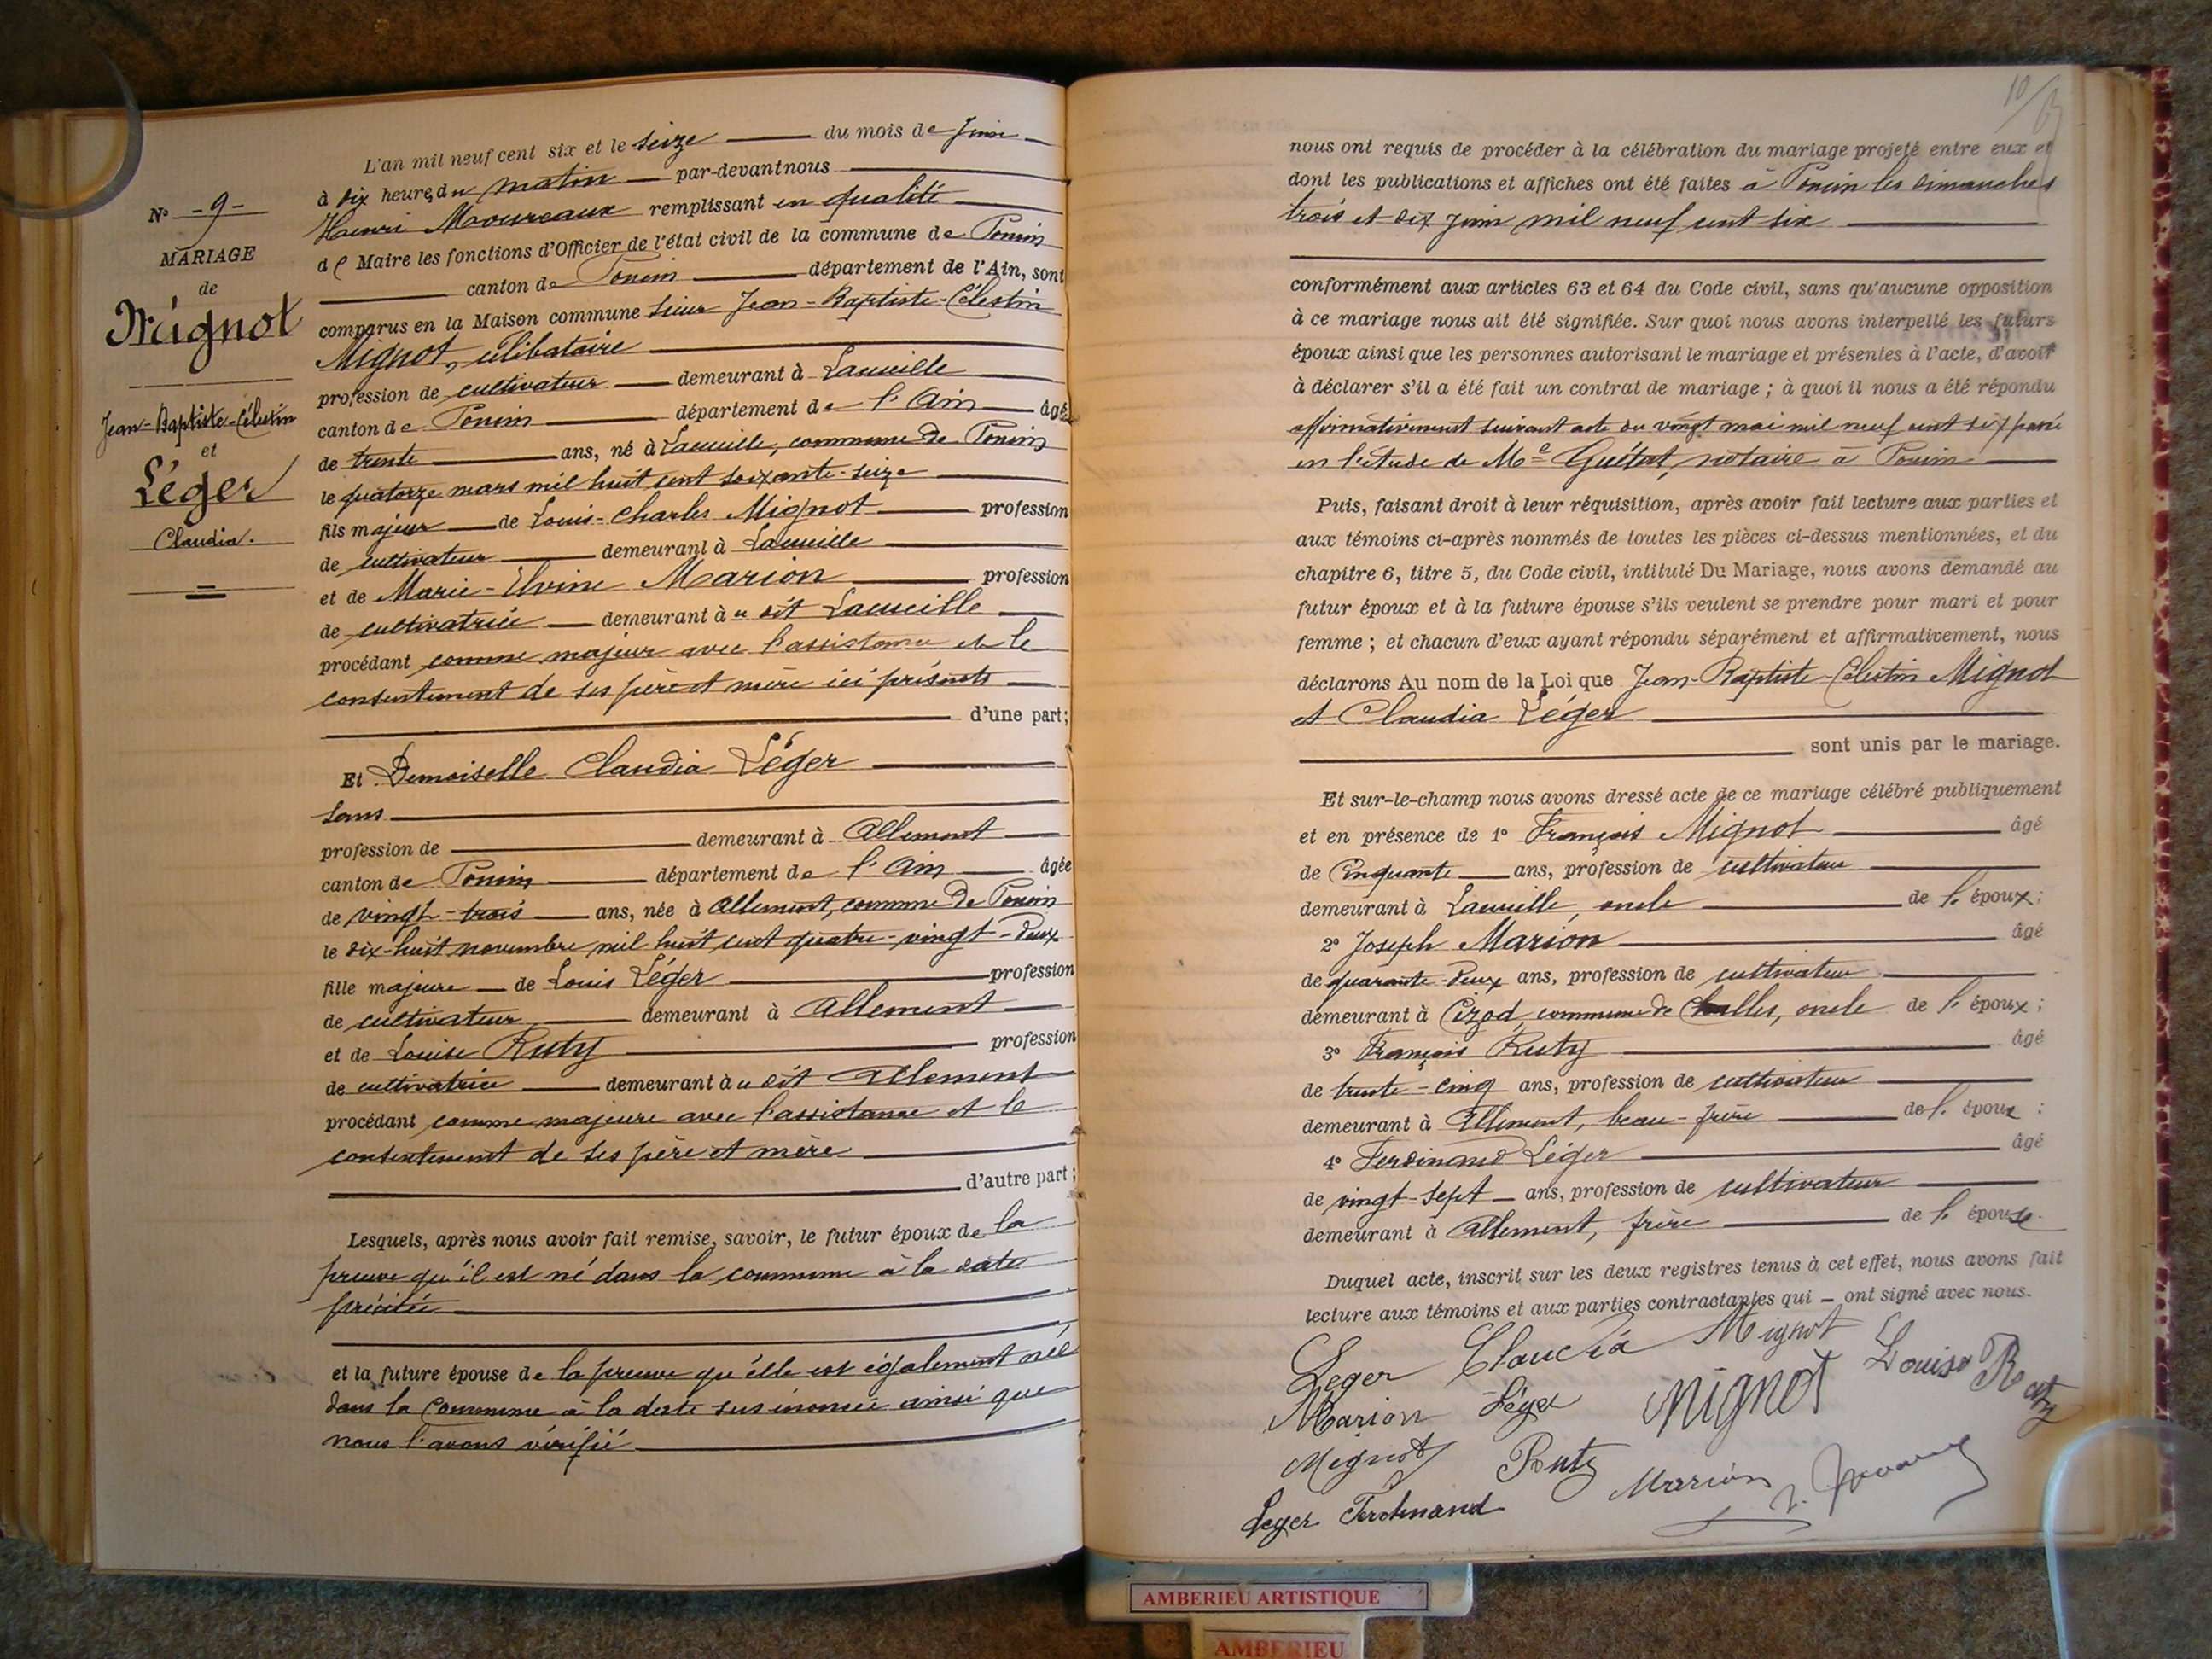 N° -9-
MARIAGE
de
Mignot
Jean-Baptiste-Célestin
et
Léger
Claudia.
L'an mil neuf cent six et le seize du mois de Juin
à dix heures du matin par-devant nous
Henri Moureaux remplissant en qualité
de Maire les fonctions d'Officier de l'état civil de la commune de Poncin
canton de Poncin département de l'Ain, sont
comparus en la Maison commune sieur Jean-Baptiste-Célestin
Mignot, célibataire
profession de cultivateur demeurant à Leuseille
canton de Poncin département de l'Ain âgé
de trente ans, né à commune de Poncin
le quatorze mars mil huit cent soixante-seize
fils majeur de Louis-Charles Mignot profession
de cultivateur demeurant à
et de Marie-Elvine Marion profession
de cultivatrice demeurant à u dit
procédant comme majeur avec l'assistance et le
consentement de ses père et mère ici présents
d'une part;
Et Demoiselle Claudia Léger
sans
profession de demeurant à Allement
canton de Poncin département de l'Ain âgée
de vingt-trois ans, née à Allement, commune de Poncin
le dix-huit novembre mil huit cent quatre-vingt-deux
fille majeure de Louis Léger profession
de cultivateur demeurant à Allement
et de Louise Ruty profession
de cultivatrice demeurant à u dit Allement
procédant comme majeure avec l'assistance et le
consentement de ses père et mère
d'autre part;
Lesquels, après nous avoir fait remise, savoir, le futur époux de la
preuve qu'il est né dans la commune à la date
précitée
et la future épouse de la preuve qu'elle est également née
dans la Commune à la date sus énoncée ainsi que
nous l'avons vérifié
10
nous ont requis de procéder à la célébration du mariage projeté entre eux et
dont les publications et affiches ont été faites à Poncin les dimanches
trois et dix Juin mil neuf cent six
conformément aux articles 63 et 64 du Code civil, sans qu'aucune opposition
à ce mariage nous ait été signifiée. Sur quoi nous avons interpellé les futurs
époux ainsi que les personnes autorisant le mariage et présentes à l'acte, d'avoir
à déclarer s'il a été fait un contrat de mariage ; à quoi il nous a été répondu
affirmativement suivant acte du vingt mai mil neuf cent six passé
en l'étude de Me Guétat, notaire à Poncin
Puis, faisant droit à leur réquisition, après avoir fait lecture aux parties et
aux témoins ci-après nommés de toutes les pièces ci-dessus mentionnées, et du
chapitre 6, titre 5, du Code civil, intitulé Du Mariage, nous avons demandé au
futur époux et à la future épouse s'ils veulent se prendre pour mari et pour
femme ; et chacun d'eux ayant répondu séparément et affirmativement, nous
déclarons Au nom de la Loi que Jean-Baptiste-Célestin Mignot
et Claudia Léger
sont unis par le mariage.
Et sur-le-champ nous avons dressé acte de ce mariage célébré publiquement
et en présence de 1° François Mignot âgé
de Cinquante ans, profession de cultivateur
demeurant à oncle de l'époux;
2° Joseph Marion âgé
de quarante-deux ans, profession de cultivateur
demeurant à Cizod, commune de Challes, oncle de l'époux;
3° François Ruty âgé
de trente-cinq ans, profession de cultivateur
demeurant à Allement, beau-frère de l'époux;
4° Ferdinand Léger âgé
de vingt-sept ans, profession de cultivateur
demeurant à Allement, frère de l'épouse.
Duquel acte, inscrit sur les deux registres tenus à cet effet, nous avons fait
lecture aux témoins et aux parties contractantes qui ont signé avec nous.
Leger Claudia Mignot Louise Ruty
Marion Léger Mignot
Mignot Ruty Marion
Leger Ferdinand
AMBERIEU ARTISTIQUE
AMBERIEU